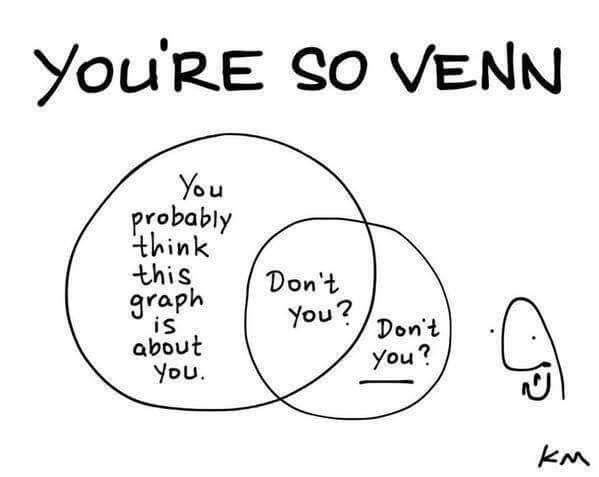 YOU'RE SO VENN
You
probably
think
this
graph
is
about
you.
Don't
you?
Don't
you?
KM